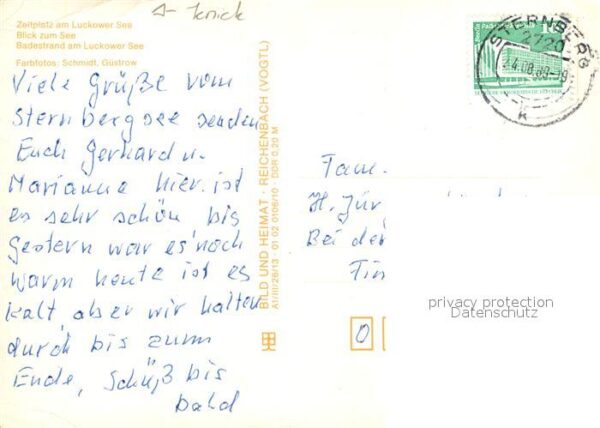 Zeltplatz am Luckower See
Blick zum See
Badestrand am Luckower See
Farbfotos: Schmidt, Güstrow
Viele Grüße vom
Sternbergsee senden
Euch Gerhard u.
Marianne hier ist
es sehr schön bis
Gestern war es noch
warm heute ist es
kalt aber wir halten
durch bis zum
Ende, Schüß bis
bald
BILD UND HEIMAT · REICHENBACH (VOGTL)
A1/III/26/13 01 02 0106/10 · DDR 0,20 M
STERNBERG
2720
24.08.89-18
K
10
Fam.
H. Jür
Bei de
privacy protection
Datenschutz
0